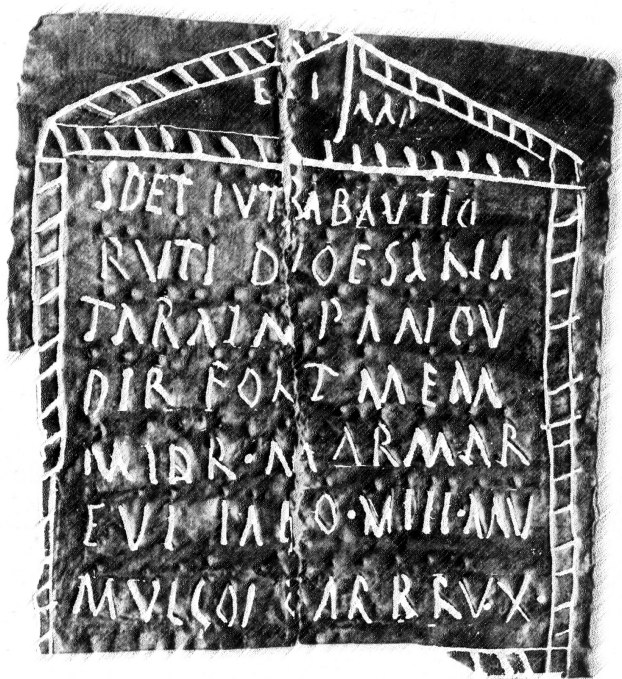 SDET IVTRABAVTIO
RVTI DVOESANIA
TARAIN PANOV
DIR FONT MEM
MIDR·MARMAR
EVI IABO·MIII·MV
MVLCOI CARBRVX·